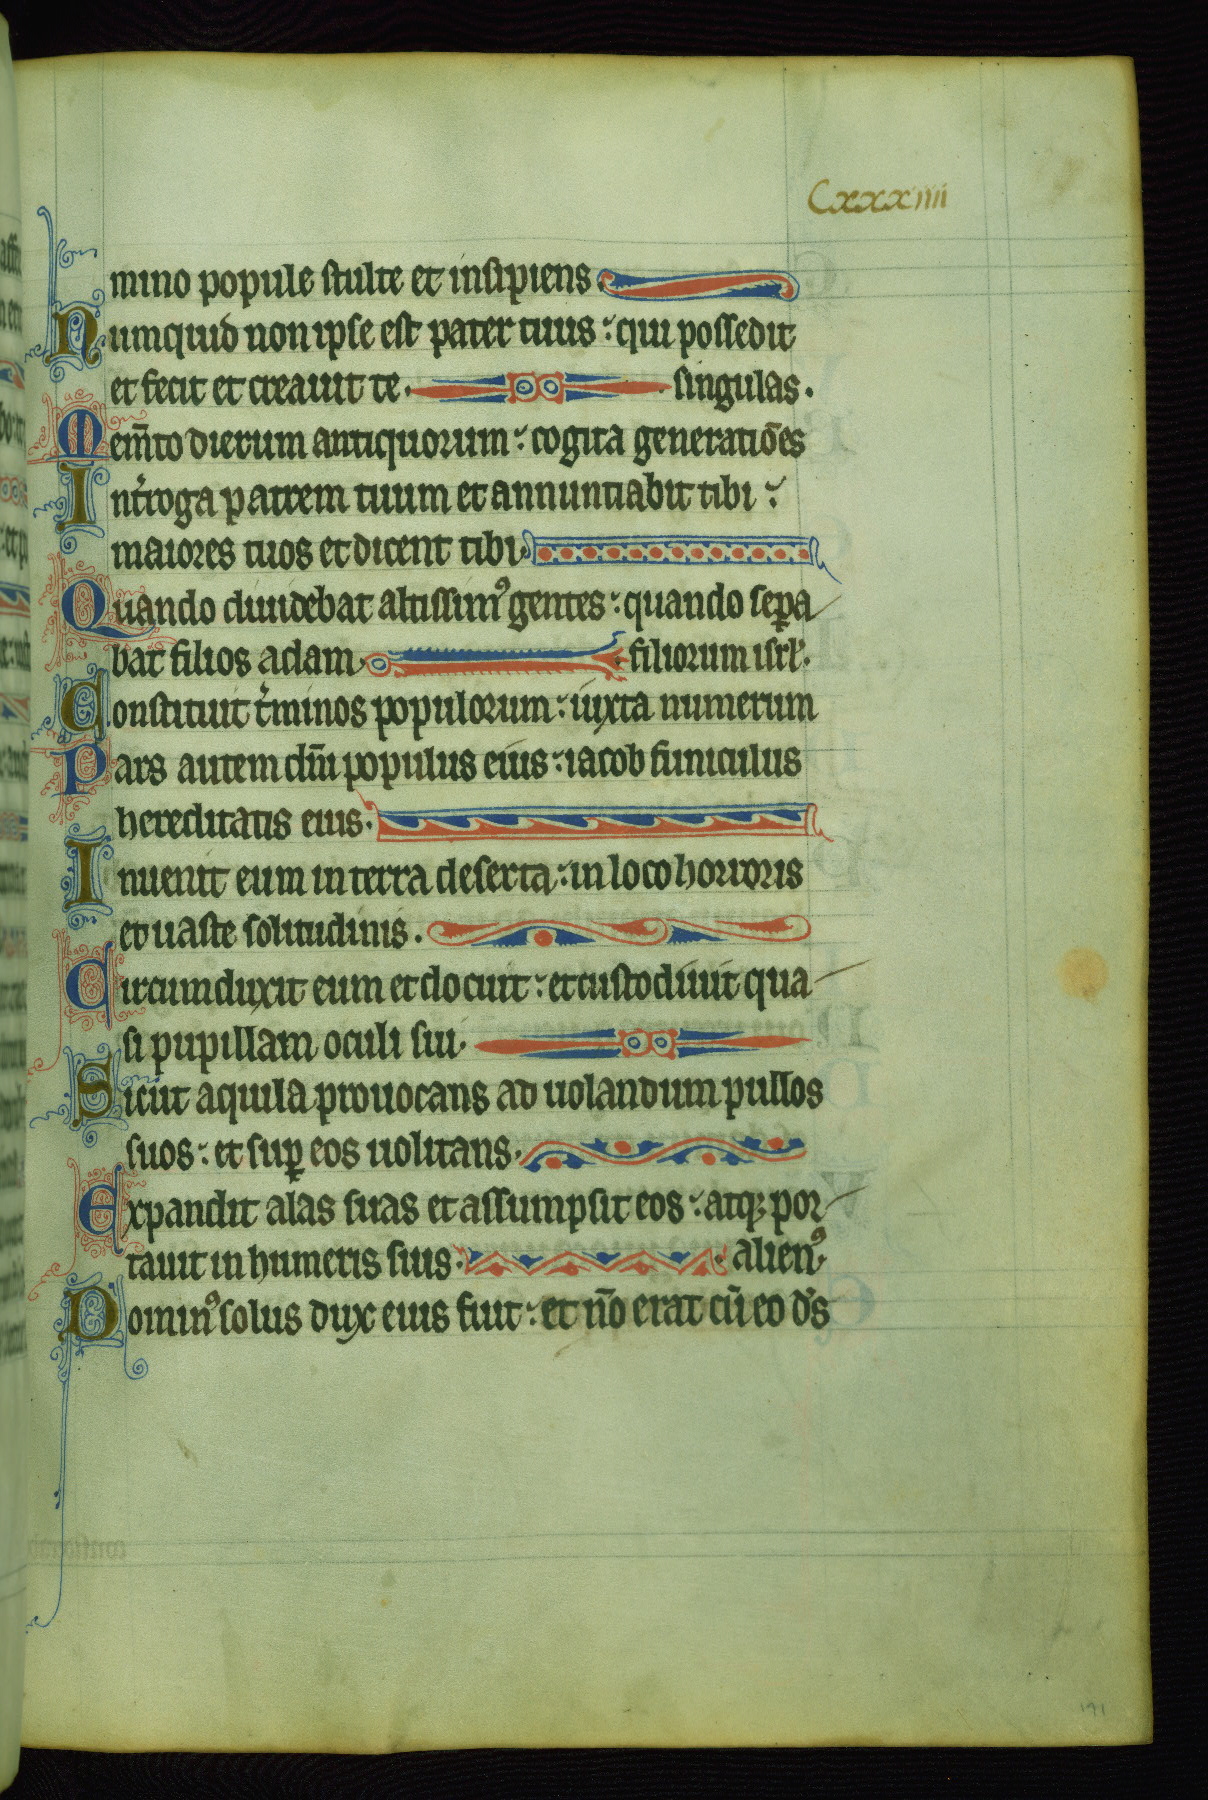 Cxxxiiii
mino popule stulte et insipiens.
Numquid non ipse est pater tuus: qui possedit
et fecit et creauit te. singulas.
Mem̄to dierum antiquorum: cogita generatiōes
Int̾roga patrem tuum et annuntiabit tibi:
maiores tuos et dicent tibi.
Quando diuidebat altissimꝰ gentes: quando sep̱a
bat filios adam. filiorum isrl'.
Constituit t̾minos populorum: iuxta numerum
Pars autem dn̄i populus eius: iacob funiculus
hereditatis eius.
Inuenit eum in terra deserta: in loco horroris
et uaste solitudinis.
Circumduxit eum et docuit: et custodiuit qua
si pupillam oculi sui.
Sicut aquila prouocans ad uolandum pullos
suos: et suꝑ eos uolitans.
Expandit alas suas et assumpsit eos: atqꝫ por
tauit in humeris suis. alienꝰ.
Dominꝰ solus dux eius fuit: et nō erat cū eo d̄s
191